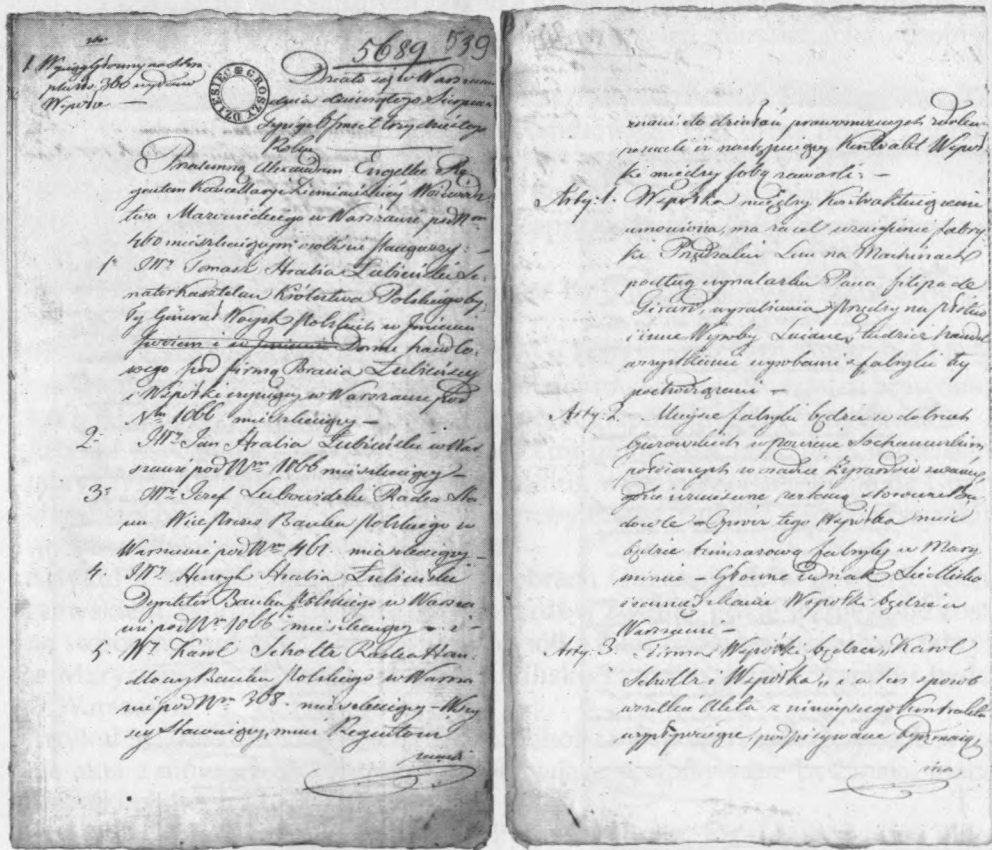 5689 539
1. Wyciąg Główny na Stem
plu zło. 360 wydano
Wspólce —
DZIESIĘĆ GROSZY
Działo się w Warszawie
dnia dziewiątego Sierpnia
Tysiąc ośmset trzydziestego
Roku
Przedemną Alexandrem Engelke Re
jentem Kancellaryi Ziemiańskiej Wojewódz
twa Mazowieckiego w Warszawie pod Nrem
mieszkającym osobiście stanąwszy: —
1° JW. Tomasz Hrabia Łubieński Se
nator Kasztelan Królestwa Polskiego by
ły Generał Woysk Polskich, w Imieniu
swoiem i w Imieniu Domu handlo
wego pod firmą Bracia Łubieńscy
i Wspólki w Warszawie pod
Nrm 1066 mieszkający —
2° JW. Jan Hrabia Łubieński w War
szawie pod Nrm 1066 mieszkający
3° JW. Jozef Lubowidzki Radca Sta
nu Wice Prezes Banku Polskiego w
Warszawie pod Nrm 461. mieszkający —
4. JW. Henryk Hrabia Łubieński
Dyrektor Banku Polskiego w Warsza
wie pod Nrm 1066 mieszkający — i —
5 W. Karol Scholtz Radca Han
dlowy Banku Polskiego w Warsza
wie pod Nrm 368. mieszkający — Wszy
scy Stawający, mnie Rejentowi
znani
znani do działań prawomocnych
następujący Kontrakt Wspól
ki między sobą zawarli: —
Arty: 1. Wspólka między Kontraktującemi
umówiona, ma za cel urządzenie fabry
ki Przędzalni Lnu na Machinach
podług wynalazku Pana Filipa de
Girard, wyrabiania Przędzy na Płótno
i inne Wyroby Lniane, tudzież handel
wszystkiemi wyrobami z fabryki tey
pochodzącemi —
Arty. 2. — Miejsce fabryki będzie w dobrach
Guzowskich w powiecie Sochaczewskim
położonych w osadzie Żyrardów zwaney
gdzie wzniesione zostaną stosowne Bu
dowle — Oprócz tego Wspólka mieć
będzie timczasową fabrykę w Mary
moncie — Główne iednak Siedlisko
Wspólki będzie w
Warszawie —
Arty. 3. Firma Wspólki będzie, „Karol
Scholtz i Wspólka" i w ten sposób
wszelkie Akta z niniejszego Kontraktu
wypływające, podpisywane być mają